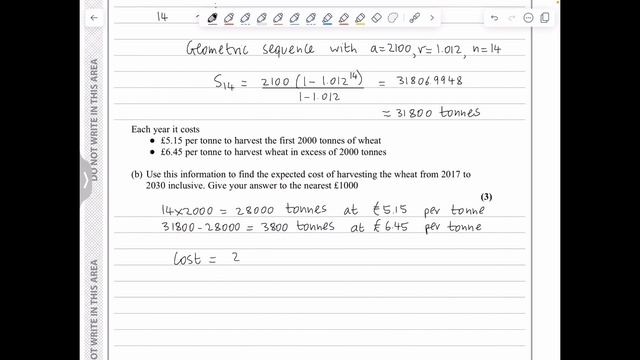 14
Geometric sequence with a=2100, r=1.012, n=14
S14 = 2100 (1-1.012^14) / 1-1.012 = 31806.9948
= 31800 tonnes
Each year it costs
• £5.15 per tonne to harvest the first 2000 tonnes of wheat
• £6.45 per tonne to harvest wheat in excess of 2000 tonnes
(b) Use this information to find the expected cost of harvesting the wheat from 2017 to
2030 inclusive. Give your answer to the nearest £1000
(3)
14×2000 = 28000 tonnes at £5.15 per tonne
31800-28000 = 3800 tonnes at £6.45 per tonne
Cost = 2
DO NOT WRITE IN THIS AREA
DO NOT WRITE IN THIS AREA